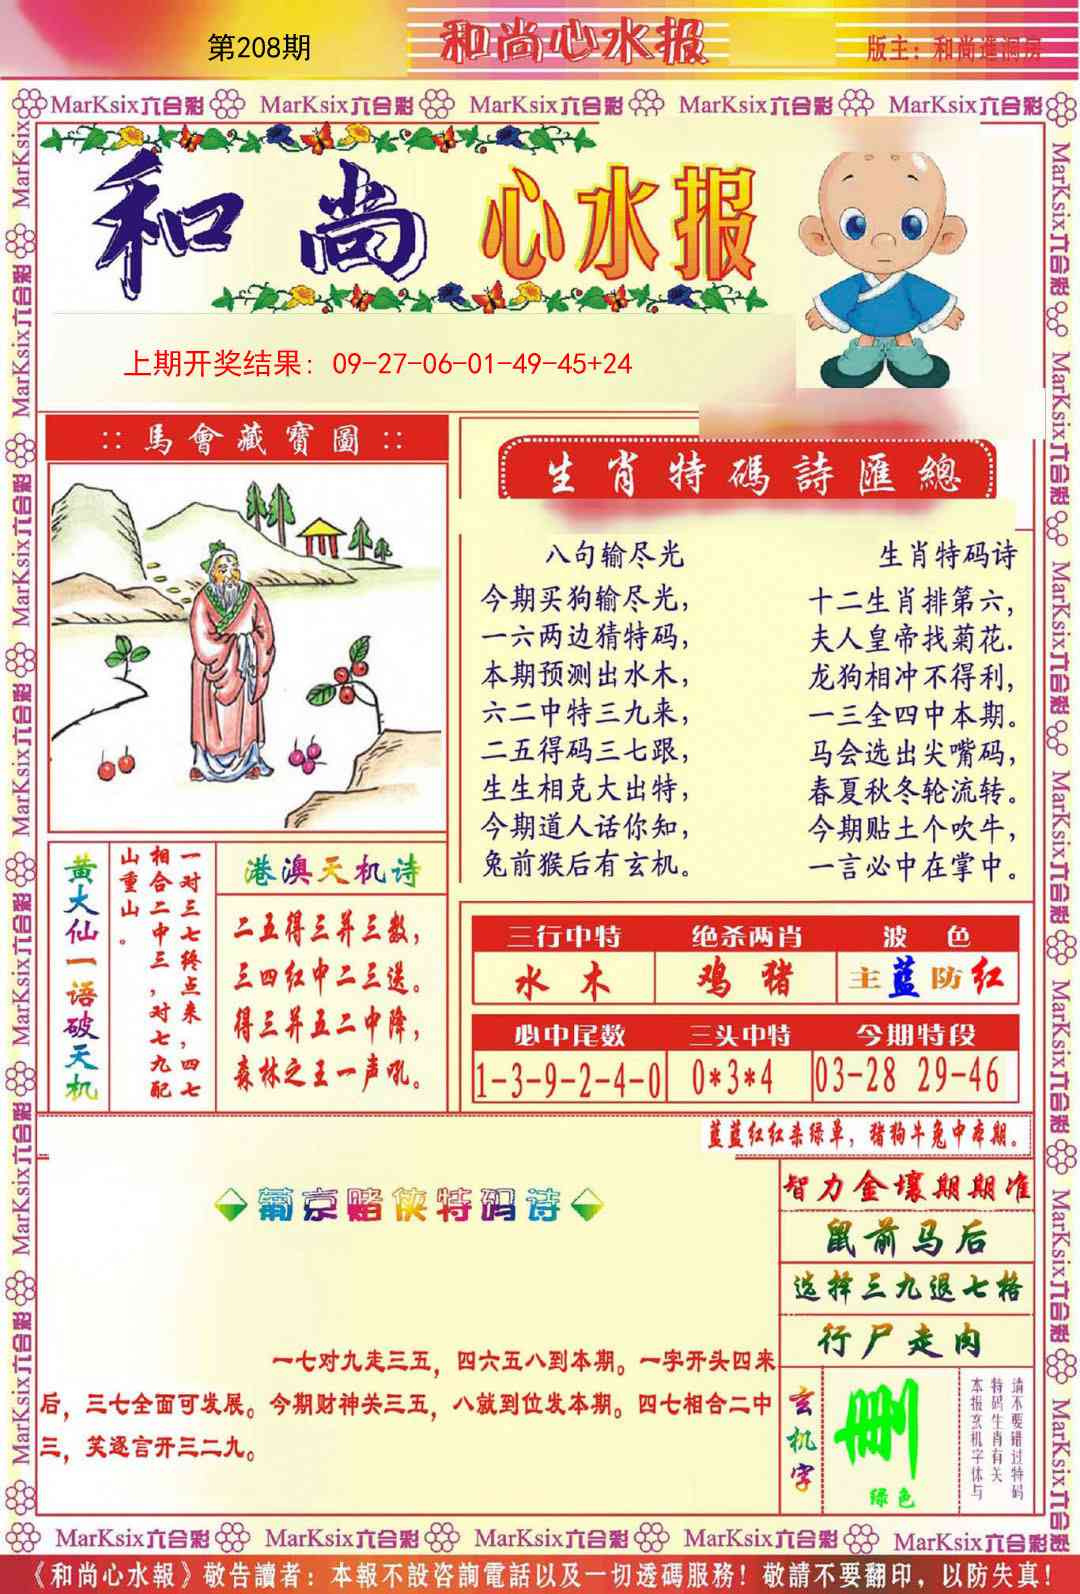 第208期
和尚心水报
版主：和尚進洞房
MarKsix六合彩 MarKsix六合彩 MarKsix六合彩 MarKsix六合彩 MarKsix六合彩
和尚 心水报
上期开奖结果：09-27-06-01-49-45+24
::馬會藏寶圖::
生肖特碼詩匯總
八句输尽光
今期买狗输尽光，
一六两边猜特码，
本期预测出水木，
六二中特三九来，
二五得码三七跟，
生生相克大出特，
今期道人话你知，
兔前猴后有玄机。
生肖特码诗
十二生肖排第六，
夫人皇帝找菊花.
龙狗相冲不得利，
一三全四中本期。
马会选出尖嘴码，
春夏秋冬轮流转。
今期贴士个吹牛，
一言必中在掌中。
黄大仙一语破天机
一对三七终点来，四七
相合二中三，对七九配
山重山。
港澳天机诗
二五得三并三数，
三四红中二三送。
得三并五二中降，
森林之王一声吼。
三行中特 绝杀两肖 波色
水木 鸡猪 主蓝防红
必中尾数 三头中特 今期特段
1-3-9-2-4-0 0*3*4 03-28 29-46
蓝蓝红红杀绿单，猪狗牛兔中本期。
葡京赌侠特码诗
一七对九走三五，四六五八到本期。一字开头四来
后，三七全面可发展。今期财神关三五，八就到位发本期。四七相合二中
三，笑逐言开三二九。
智力金壤期期准
鼠前马后
选择三九退七格
行尸走肉
玄机字
删
绿色
请不要错过特码
特码生肖有关
本报玄机字体与
MarKsix六合彩 MarKsix六合彩 MarKsix六合彩 MarKsix六合彩 MarKsix六合彩
《和尚心水報》敬告讀者：本報不設咨詢電話以及一切透碼服務！敬請不要翻印，以防失真！